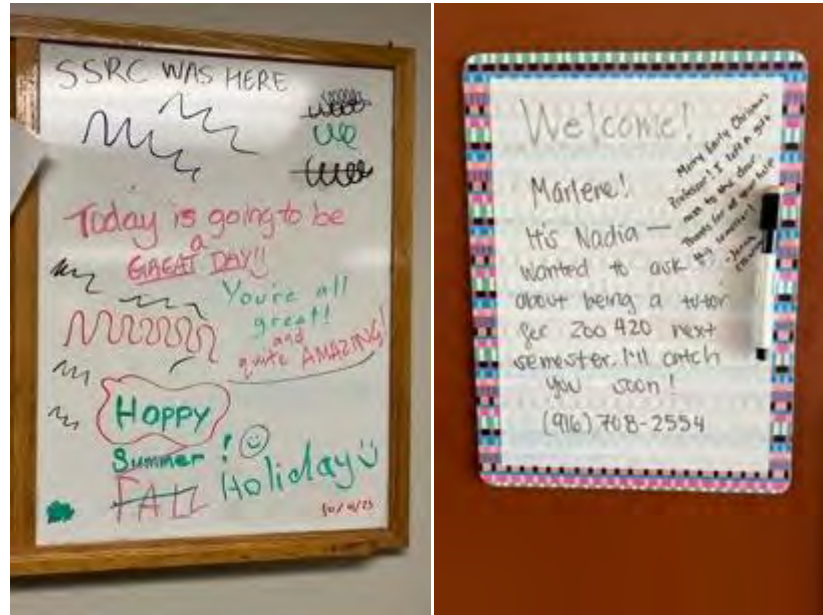 SSRC WAS HERE
we
Today is going to be
a
GREAT DAY!!
You're all
great!
and
quite AMAZING!
Hoppy
Summer !
FALL
Holiday
Welcome!
Marlene!
It's Nadia —
wanted to ask
about being a tutor
for Zoo 420 next
semester. I'll catch
you soon!
(916) 708-2554
Merry Early Christmas
Professor! I left a gift
next to the door.
Thanks for all your help
this semester!!